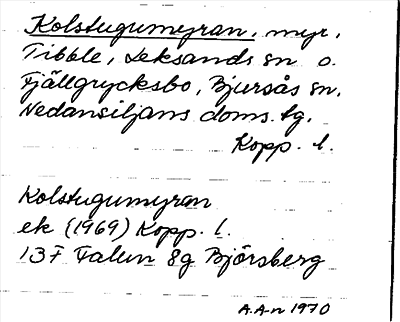 Kolstugumyran, myr,
Tibble, Leksands sn o.
Fjällgrycksbo, Bjursås sn.
Nedansiljans doms. tg.
Kopp. l.
Kolstugumyran
ek (1969) Kopp. l.
13F Falun 8g Björsberg
A.A-n 1970